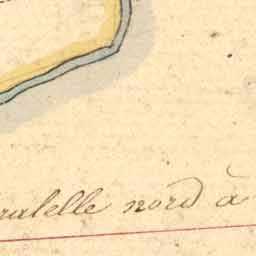 ralelle nord à